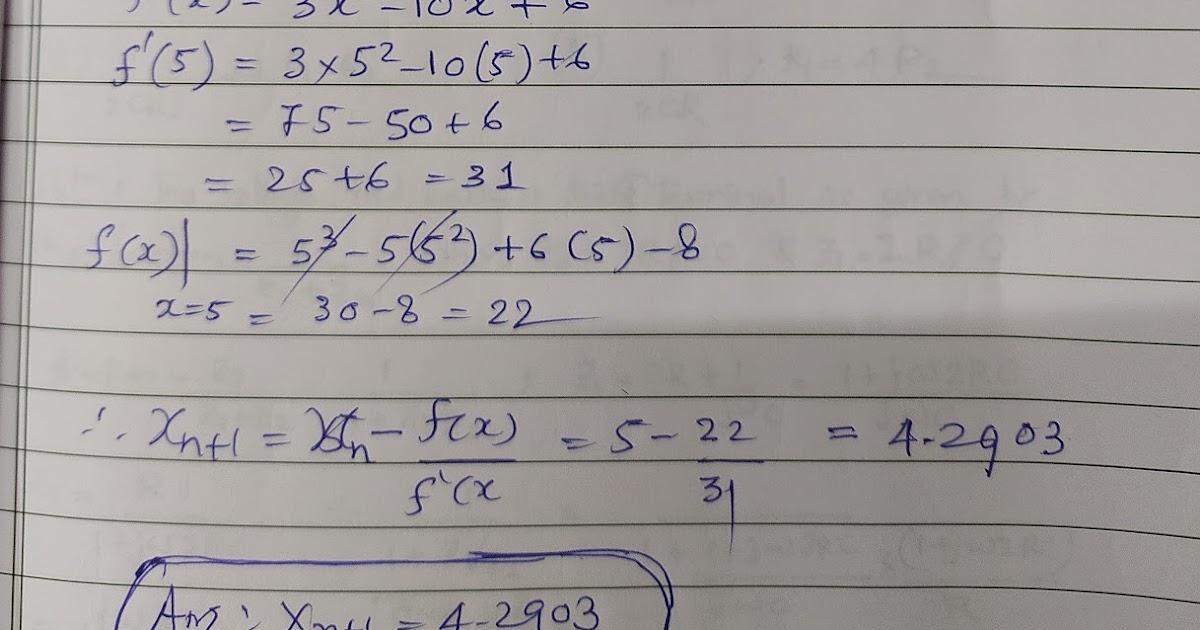 f'(x) = 3x² - 10x + 6
f'(5) = 3 × 5² - 10(5) + 6
= 75 - 50 + 6
= 25 + 6 = 31
f(x)| = 5³ - 5(5²) + 6(5) - 8
x=5 = 30 - 8 = 22
∴ xₙ₊₁ = xₙ - f(x)/f'(x = 5 - 22/31 = 4.2903
Ans: xₙ₊₁ = 4.2903